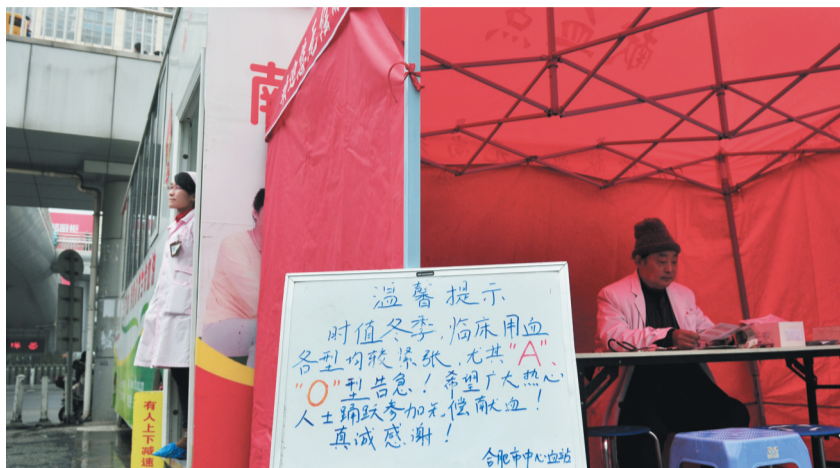 南
温馨提示
时值冬季,临床用血
各型均较紧张,尤其"A"、
"O"型告急!希望广大热心
人士踊跃参加无偿献血!
真诚感谢!
合肥市中心血站
有人上下减速